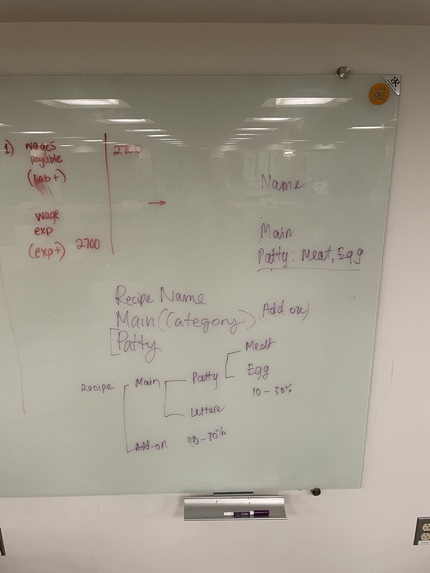 1) wages
payable
(liab+)
wage
exp
(exp+) 2700
Name
Main
Patty: Meat, Egg
Recipe Name
Main (Category) (Add on)
Patty
Recipe
Main
Patty
Meat
Egg
10-30%
Add-on